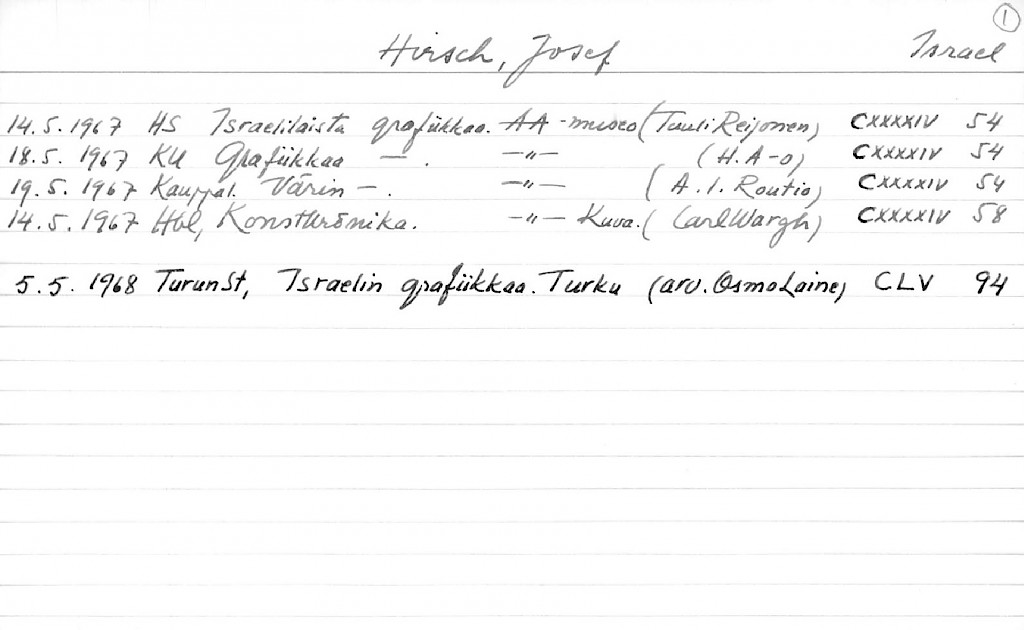 1
Hirsch, Josef Israel
14.5.1967 HS Israelilaista grafiikkaa. AA-museo (Tuuli Reijonen) CXXXXIV 54
18.5.1967 KU Grafiikkaa — . —"— (H.A-o) CXXXXIV 54
19.5.1967 Kauppal. Värin — . —"— (A.I. Routio) CXXXXIV 54
14.5.1967 Hbl, Konstkrönika. —"— Kuva. (Carl Wargh) CXXXXIV 58
5.5.1968 TurunSt, Israelin grafiikkaa. Turku (arv. Osmo Laine) CLV 94